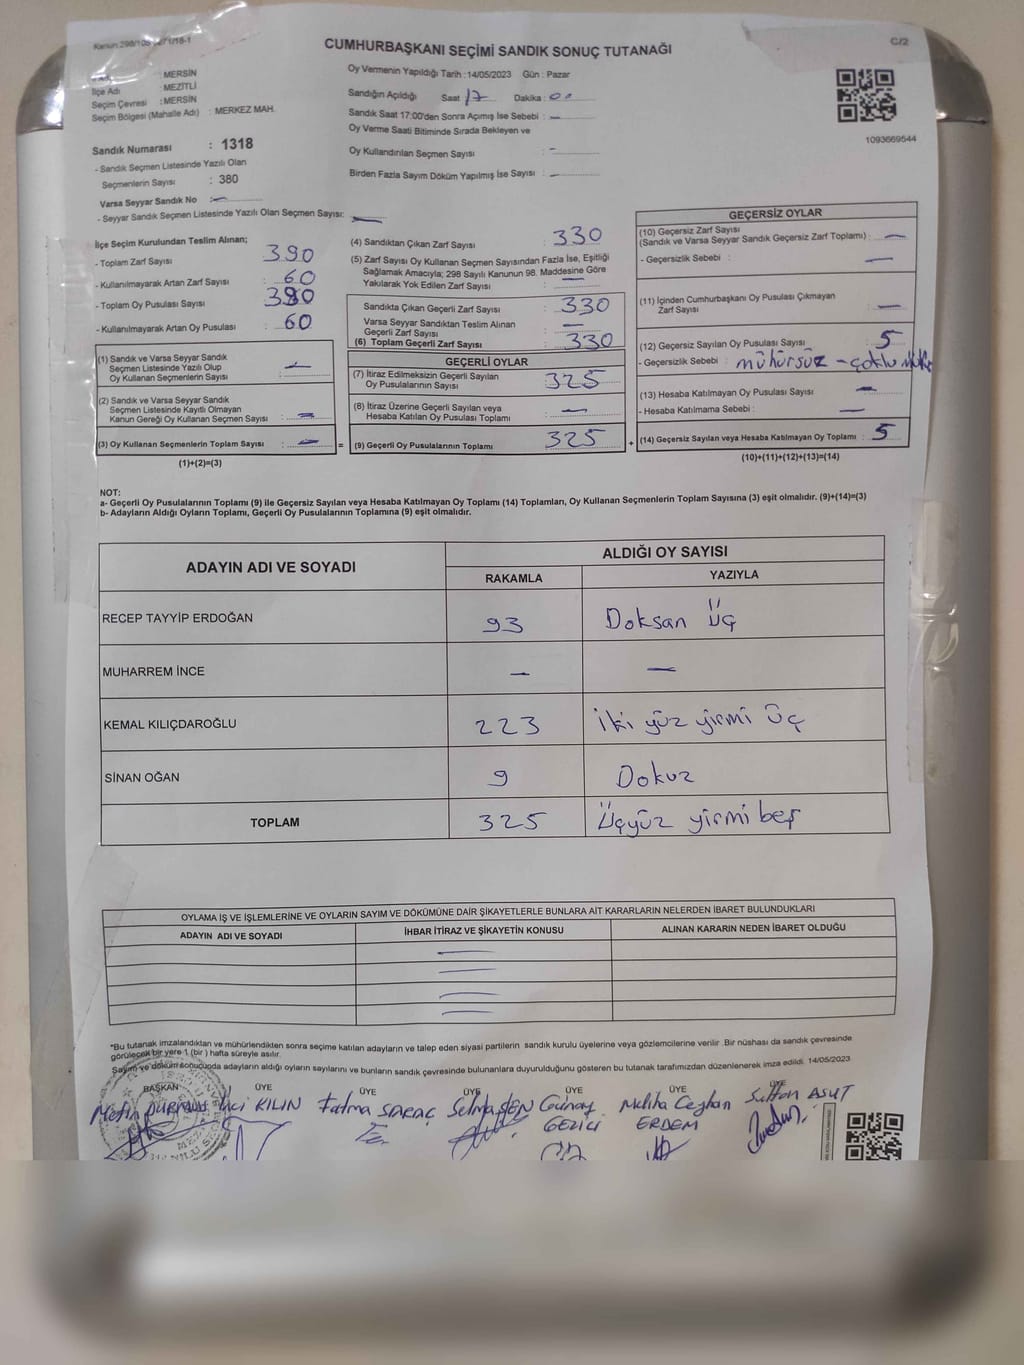 CUMHURBAŞKANI SEÇİMİ SANDIK SONUÇ TUTANAĞI
C/2
: MERSİN
İlçe Adı : MEZİTLİ
Seçim Çevresi : MERSİN
Seçim Bölgesi (Mahalle Adı) : MERKEZ MAH.
Sandık Numarası : 1318
- Sandık Seçmen Listesinde Yazılı Olan
Seçmenlerin Sayısı : 380
Varsa Seyyar Sandık No : —
- Seyyar Sandık Seçmen Listesinde Yazılı Olan Seçmen Sayısı: —
Oy Vermenin Yapıldığı Tarih : 14/05/2023 Gün : Pazar
Sandığın Açıldığı Saat 17 Dakika : 00
Sandık Saat 17:00'den Sonra Açımış İse Sebebi : —
Oy Verme Saati Bitiminde Sırada Bekleyen ve
Oy Kullandırılan Seçmen Sayısı : —
Birden Fazla Sayım Döküm Yapılmış İse Sayısı : —
1093669544
İlçe Seçim Kurulundan Teslim Alınan;
- Toplam Zarf Sayısı : 390
- Kullanılmayarak Artan Zarf Sayısı : 60
- Toplam Oy Pusulası Sayısı : 390
- Kullanılmayarak Artan Oy Pusulası : 60
(1) Sandık ve Varsa Seyyar Sandık
Seçmen Listesinde Yazılı Olup
Oy Kullanan Seçmenlerin Sayısı : —
(2) Sandık ve Varsa Seyyar Sandık
Seçmen Listesinde Kayıtlı Olmayan
Kanun Gereği Oy Kullanan Seçmen Sayısı : —
(3) Oy Kullanan Seçmenlerin Toplam Sayısı : — =
(1)+(2)=(3)
(4) Sandıktan Çıkan Zarf Sayısı : 330
(5) Zarf Sayısı Oy Kullanan Seçmen Sayısından Fazla İse, Eşitliği
Sağlamak Amacıyla; 298 Sayılı Kanunun 98. Maddesine Göre
Yakılarak Yok Edilen Zarf Sayısı : —
Sandıkta Çıkan Geçerli Zarf Sayısı : 330
Varsa Seyyar Sandıktan Teslim Alınan
Geçerli Zarf Sayısı : —
(6) Toplam Geçerli Zarf Sayısı : 330
GEÇERLİ OYLAR
(7) İtiraz Edilmeksizin Geçerli Sayılan
Oy Pusulalarının Sayısı : 325
(8) İtiraz Üzerine Geçerli Sayılan veya
Hesaba Katılan Oy Pusulası Toplamı : —
(9) Geçerli Oy Pusulalarının Toplamı : 325 +
GEÇERSİZ OYLAR
(10) Geçersiz Zarf Sayısı
(Sandık ve Varsa Seyyar Sandık Geçersiz Zarf Toplamı) : —
- Geçersizlik Sebebi : —
(11) İçinden Cumhurbaşkanı Oy Pusulası Çıkmayan
Zarf Sayısı : —
(12) Geçersiz Sayılan Oy Pusulası Sayısı : 5
- Geçersizlik Sebebi : mühürsüz - çoklu
(13) Hesaba Katılmayan Oy Pusulası Sayısı : —
- Hesaba Katılmama Sebebi : —
(14) Geçersiz Sayılan veya Hesaba Katılmayan Oy Toplamı : 5
(10)+(11)+(12)+(13)=(14)
NOT:
a- Geçerli Oy Pusulalarının Toplamı (9) ile Geçersiz Sayılan veya Hesaba Katılmayan Oy Toplamı (14) Toplamları, Oy Kullanan Seçmenlerin Toplam Sayısına (3) eşit olmalıdır. (9)+(14)=(3)
b- Adayların Aldığı Oyların Toplamı, Geçerli Oy Pusulalarının Toplamına (9) eşit olmalıdır.
ADAYIN ADI VE SOYADI ALDIĞI OY SAYISI
RAKAMLA YAZIYLA
RECEP TAYYİP ERDOĞAN 93 Doksan Üç
MUHARREM İNCE — —
KEMAL KILIÇDAROĞLU 223 İki yüz yirmi üç
SİNAN OĞAN 9 Dokuz
TOPLAM 325 Üçyüz yirmi beş
OYLAMA İŞ VE İŞLEMLERİNE VE OYLARIN SAYIM VE DÖKÜMÜNE DAİR ŞİKAYETLERLE BUNLARA AİT KARARLARIN NELERDEN İBARET BULUNDUKLARI
ADAYIN ADI VE SOYADI İHBAR İTİRAZ VE ŞİKAYETİN KONUSU ALINAN KARARIN NEDEN İBARET OLDUĞU
*Bu tutanak imzalandıktan ve mühürlendikten sonra seçime katılan adayların ve talep eden siyasi partilerin sandık kurulu üyelerine veya gözlemcilerine verilir .Bir nüshası da sandık çevresinde
görülecek bir yere 1 (bir ) hafta süreyle asılır.
Sayım ve döküm sonucunda adayların aldığı oyların sayılarını ve bunların sandık çevresinde bulunanlara duyurulduğunu gösteren bu tutanak tarafımızdan düzenlenerek imza edildi. 14/05/2023
BAŞKAN ÜYE ÜYE ÜYE ÜYE ÜYE ÜYE
Metin KILIN Fatma SARAÇ Selma ŞEN Günay Meliha Ceyhan ASUT
GEZİCİ ERDEM